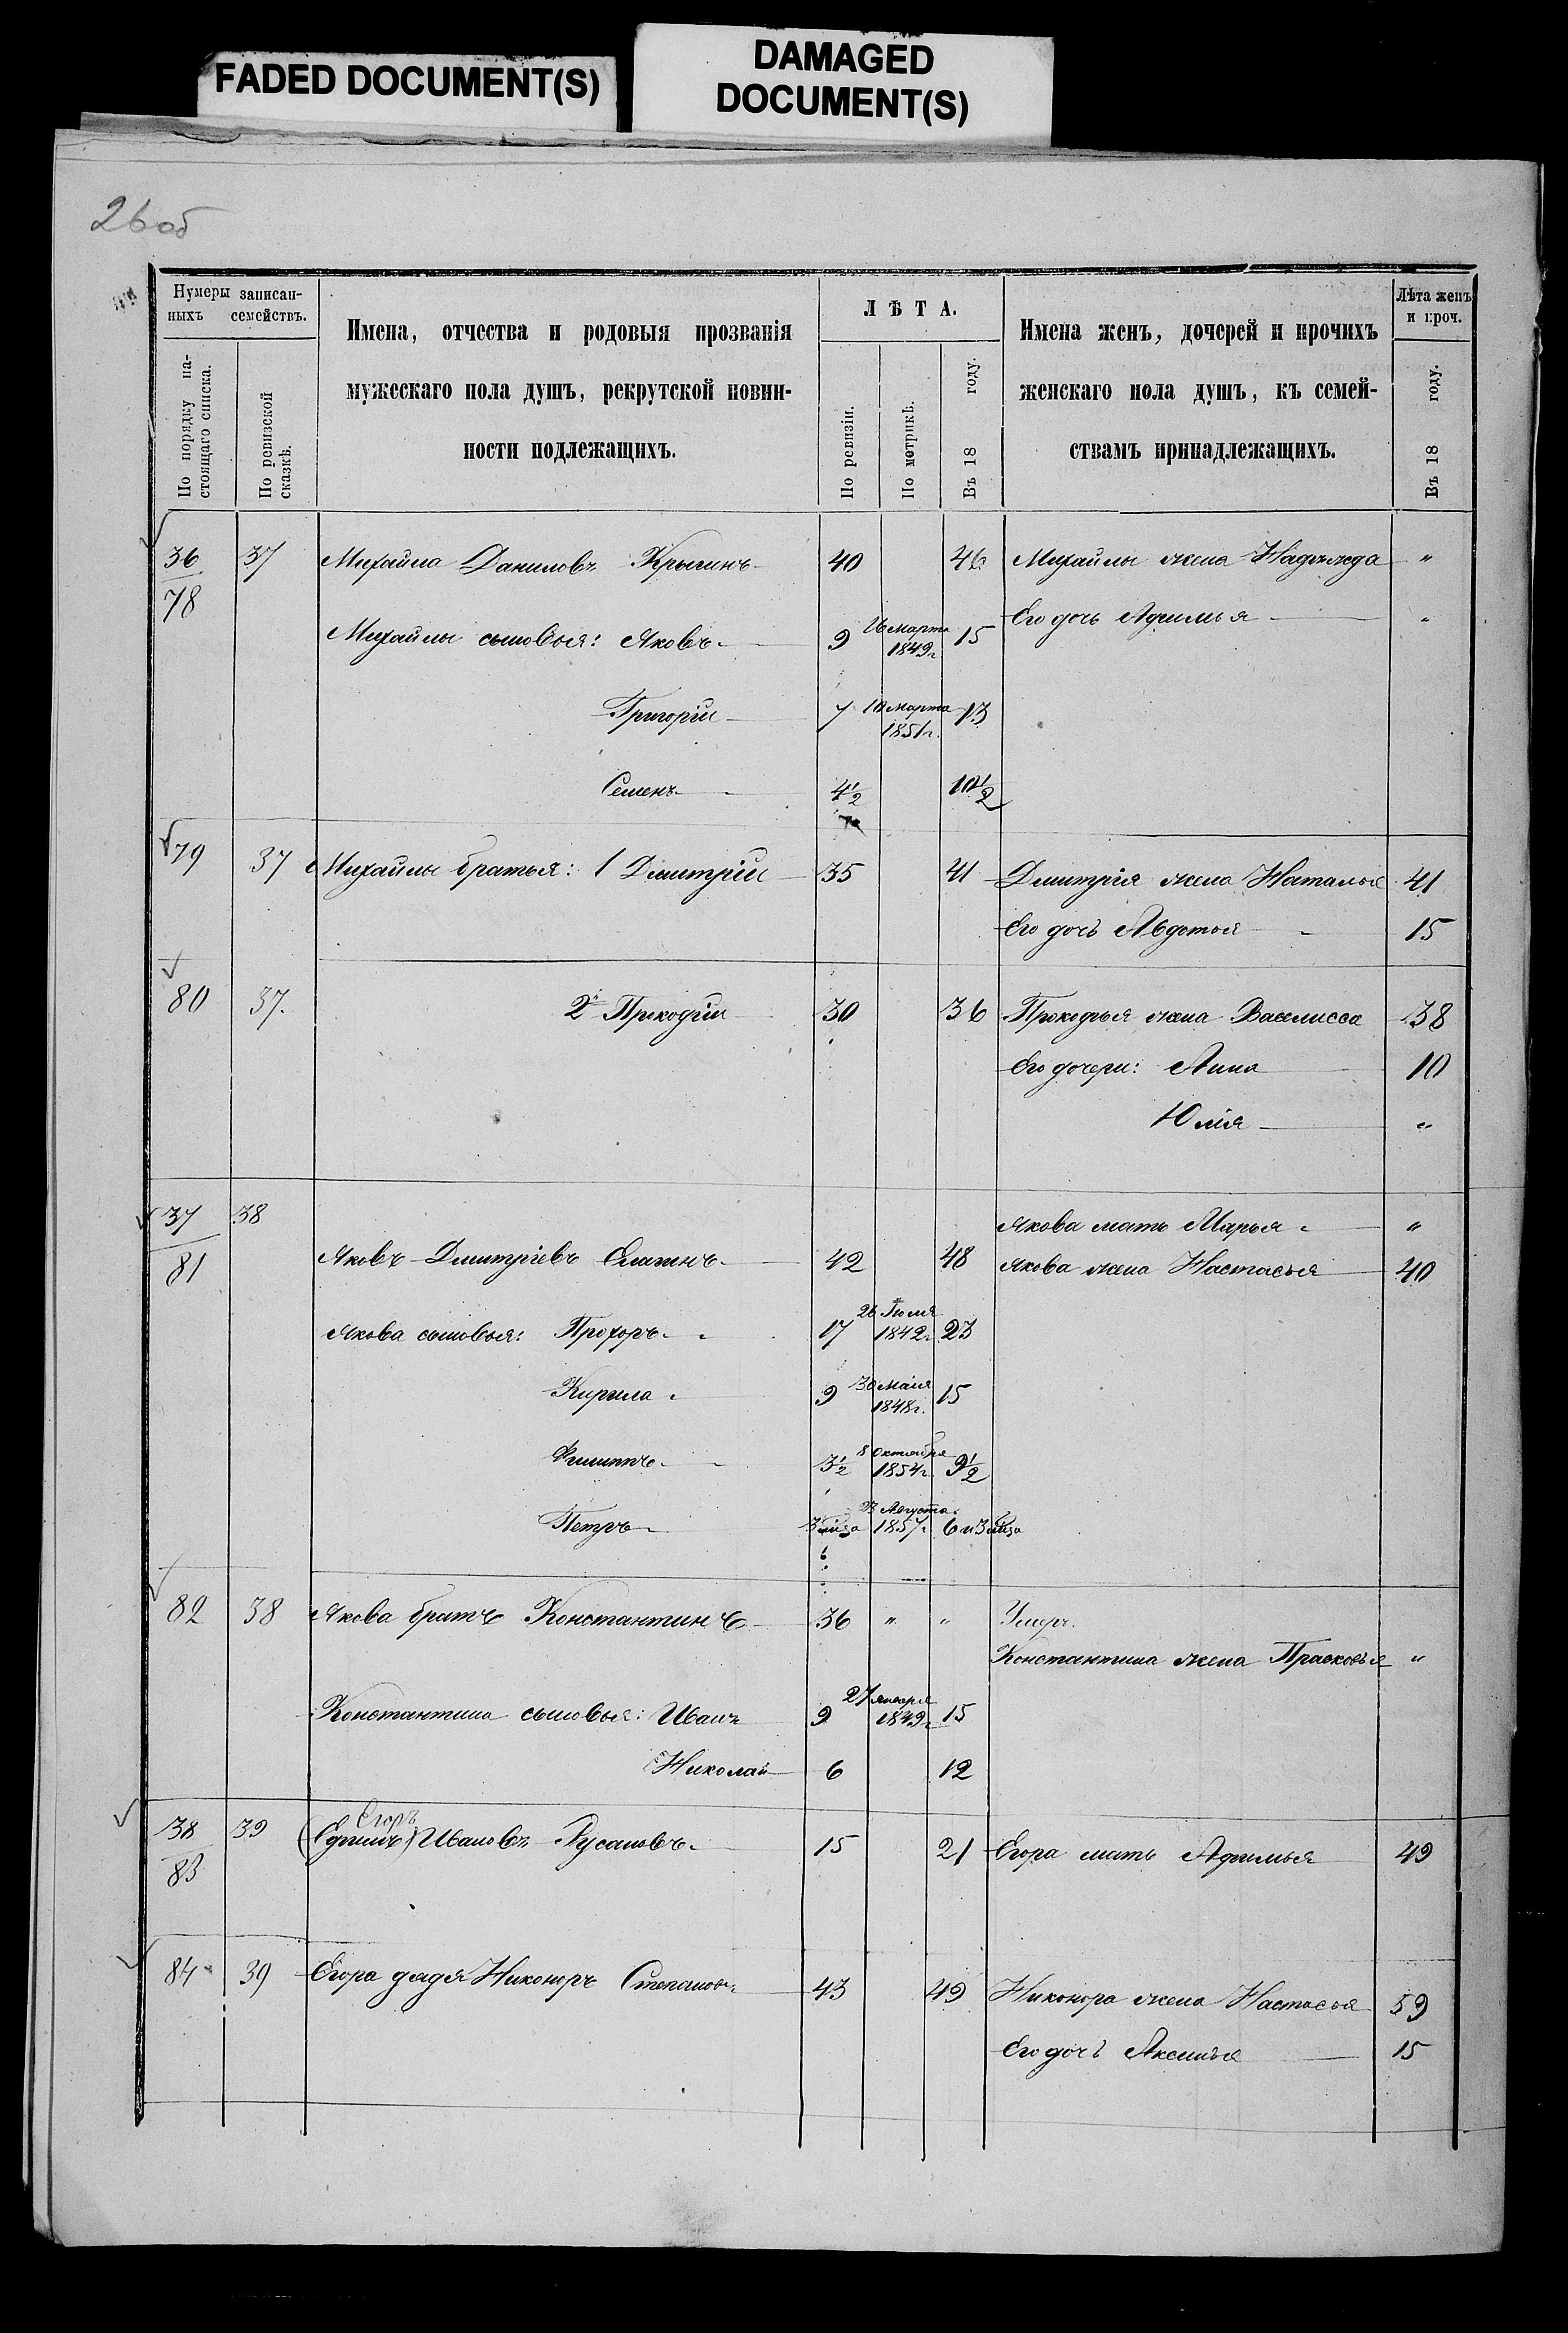 FADED DOCUMENT(S)
DAMAGED
DOCUMENT(S)
26 об
Нумеры записан-
ныхъ семействъ.
По порядку на-
стоящаго списка.
По ревизской
сказкѣ.
Имена, отчества и родовыя прозванія
мужескаго пола душъ, рекрутской повин-
ности подлежащихъ.
ЛѢТА.
По ревизіи.
По метрикѣ.
Въ 18 году.
Имена женъ, дочерей и прочихъ
женскаго пола душъ, къ семей-
ствамъ принадлежащихъ.
Лѣта женъ
и проч.
Въ 18 году.
36 37 Михайла Даниловъ 40 46 Михайлы жена Надежда "
78
Михайлы сыновья: Яковъ 9 26 марта 1849 г. 15 Его дочь Афимья "
Григорій 7 10 марта 1851 г. 13
Семенъ 4½ 10½
79 37 Михайлы братья: 1 Дмитрій 35 41 Дмитрія жена Наталья 41
Его дочь Авдотья 15
80 37. 2й Прокофій 30 36 Прокофья жена Василисса 38
Его дочери: Анна 10
Юлія "
37 38 Якова мать Марья "
81 Яковъ Дмитріевъ Елагинъ 42 48 Якова жена Настасья 40
Якова сыновья: Прохоръ 17 26 Іюля 1842 г. 23
Кирила 9 30 Маія 1848 г. 15
Филиппъ 3½ 8 Октября 1854 г. 9½
Петръ 3 мѣса 23 Августа 1857 г. 6 и 3 мѣса
82 38 Якова братъ Константинъ 36 " " Умеръ.
Константина жена Прасковья "
Константина сыновья: Иванъ 9 27 января 1849 г. 15
Николай 6 12
Егоръ
38 39 Ивановъ Русановъ 15 21 Егора мать Афимья 49
83
84 39 Егора дядя Никоноръ Степановъ 43 49 Никонора жена Настасья 59
Его дочь Аксинья 15